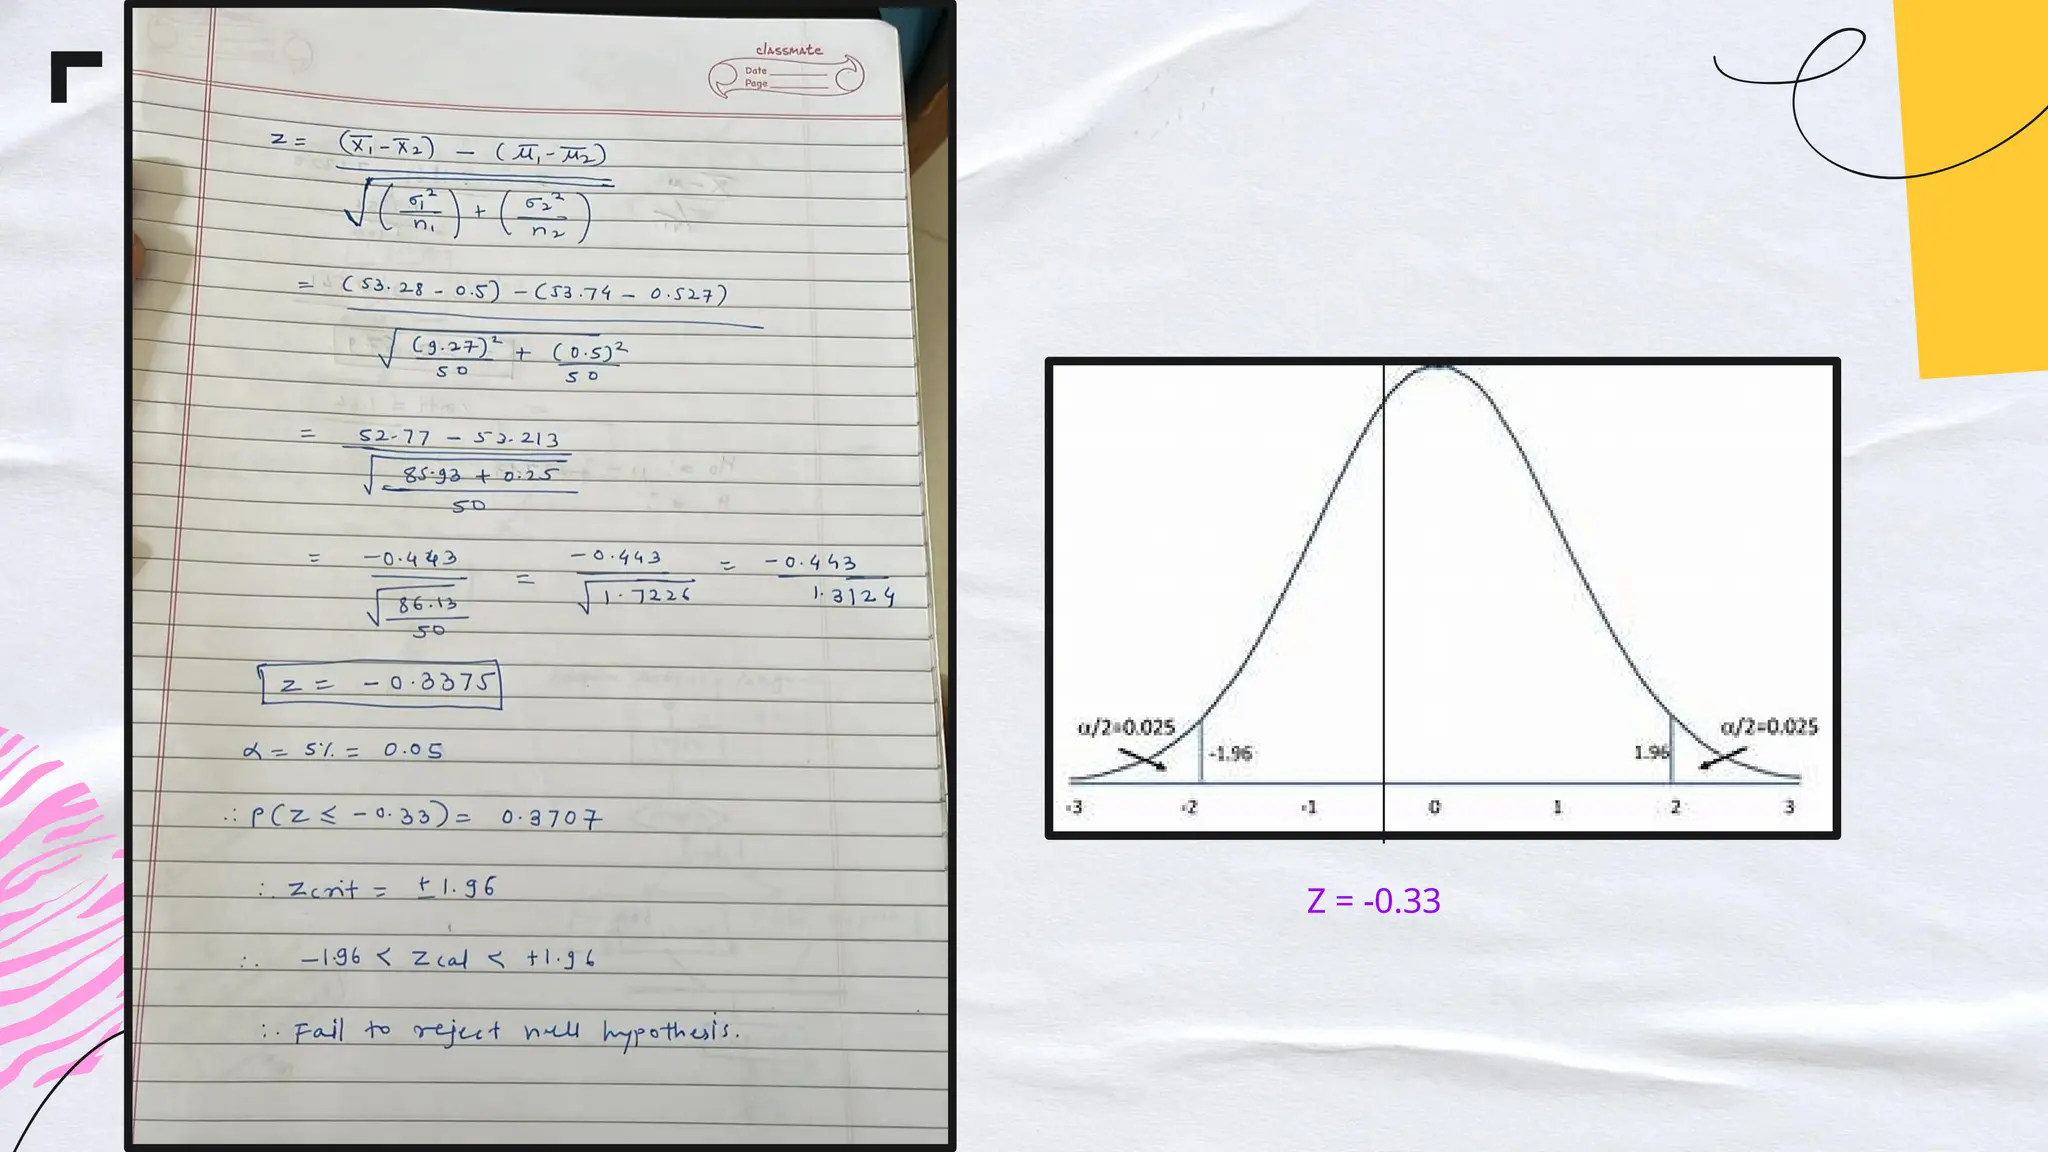 classmate
Date
Page
z = (x̄₁ - x̄₂) - (μ̄₁ - μ̄₂)
√(σ₁²/n₁) + (σ₂²/n₂)
= (53.28 - 0.5) - (53.74 - 0.527)
√(9.27)²/50 + (0.5)²/50
= 52.77 - 53.213
√85.93 + 0.25
50
= -0.443/√86.13/50 = -0.443/√1.7226 = -0.443/1.3124
z = -0.3375
α = 5% = 0.05
∴ P(Z ≤ -0.33) = 0.3707
∴ Zcrit = ± 1.96
∴ -1.96 < Zcal < +1.96
∴ Fail to reject null hypothesis.
α/2=0.025
-1.96
1.96
α/2=0.025
-3 -2 -1 0 1 2 3
Z = -0.33